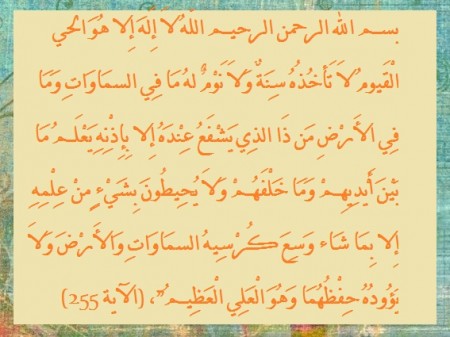 بسم الله الرحمن الرحيم اللّهُ لاَ إِلَهَ إِلا هُوَ الحي
الْقَيومُ لاَ تَأْخُذُهُ سِنَةٌ وَلاَ نَوْمٌ لهُ مَا فِي السمَاوَاتِ وَمَا
فِي الأَرْضِ مَن ذَا الذِي يَشْفَعُ عِنْدَهُ إِلا بِإِذْنِهِ يَعْلَمُ مَا
بَيْنَ أَيدِيهِمْ وَمَا خَلْفَهُمْ وَلاَ يُحِيطُونَ بِشَيْءٍ منْ عِلْمِهِ
إِلا بِمَا شَاء وَسِعَ كُرْسِيهُ السمَاوَاتِ وَالأَرْضَ وَلاَ
يَؤُودُهُ حِفْظُهُمَا وَهُوَ الْعَلِي الْعَظِيمُ”، (الآية 255)